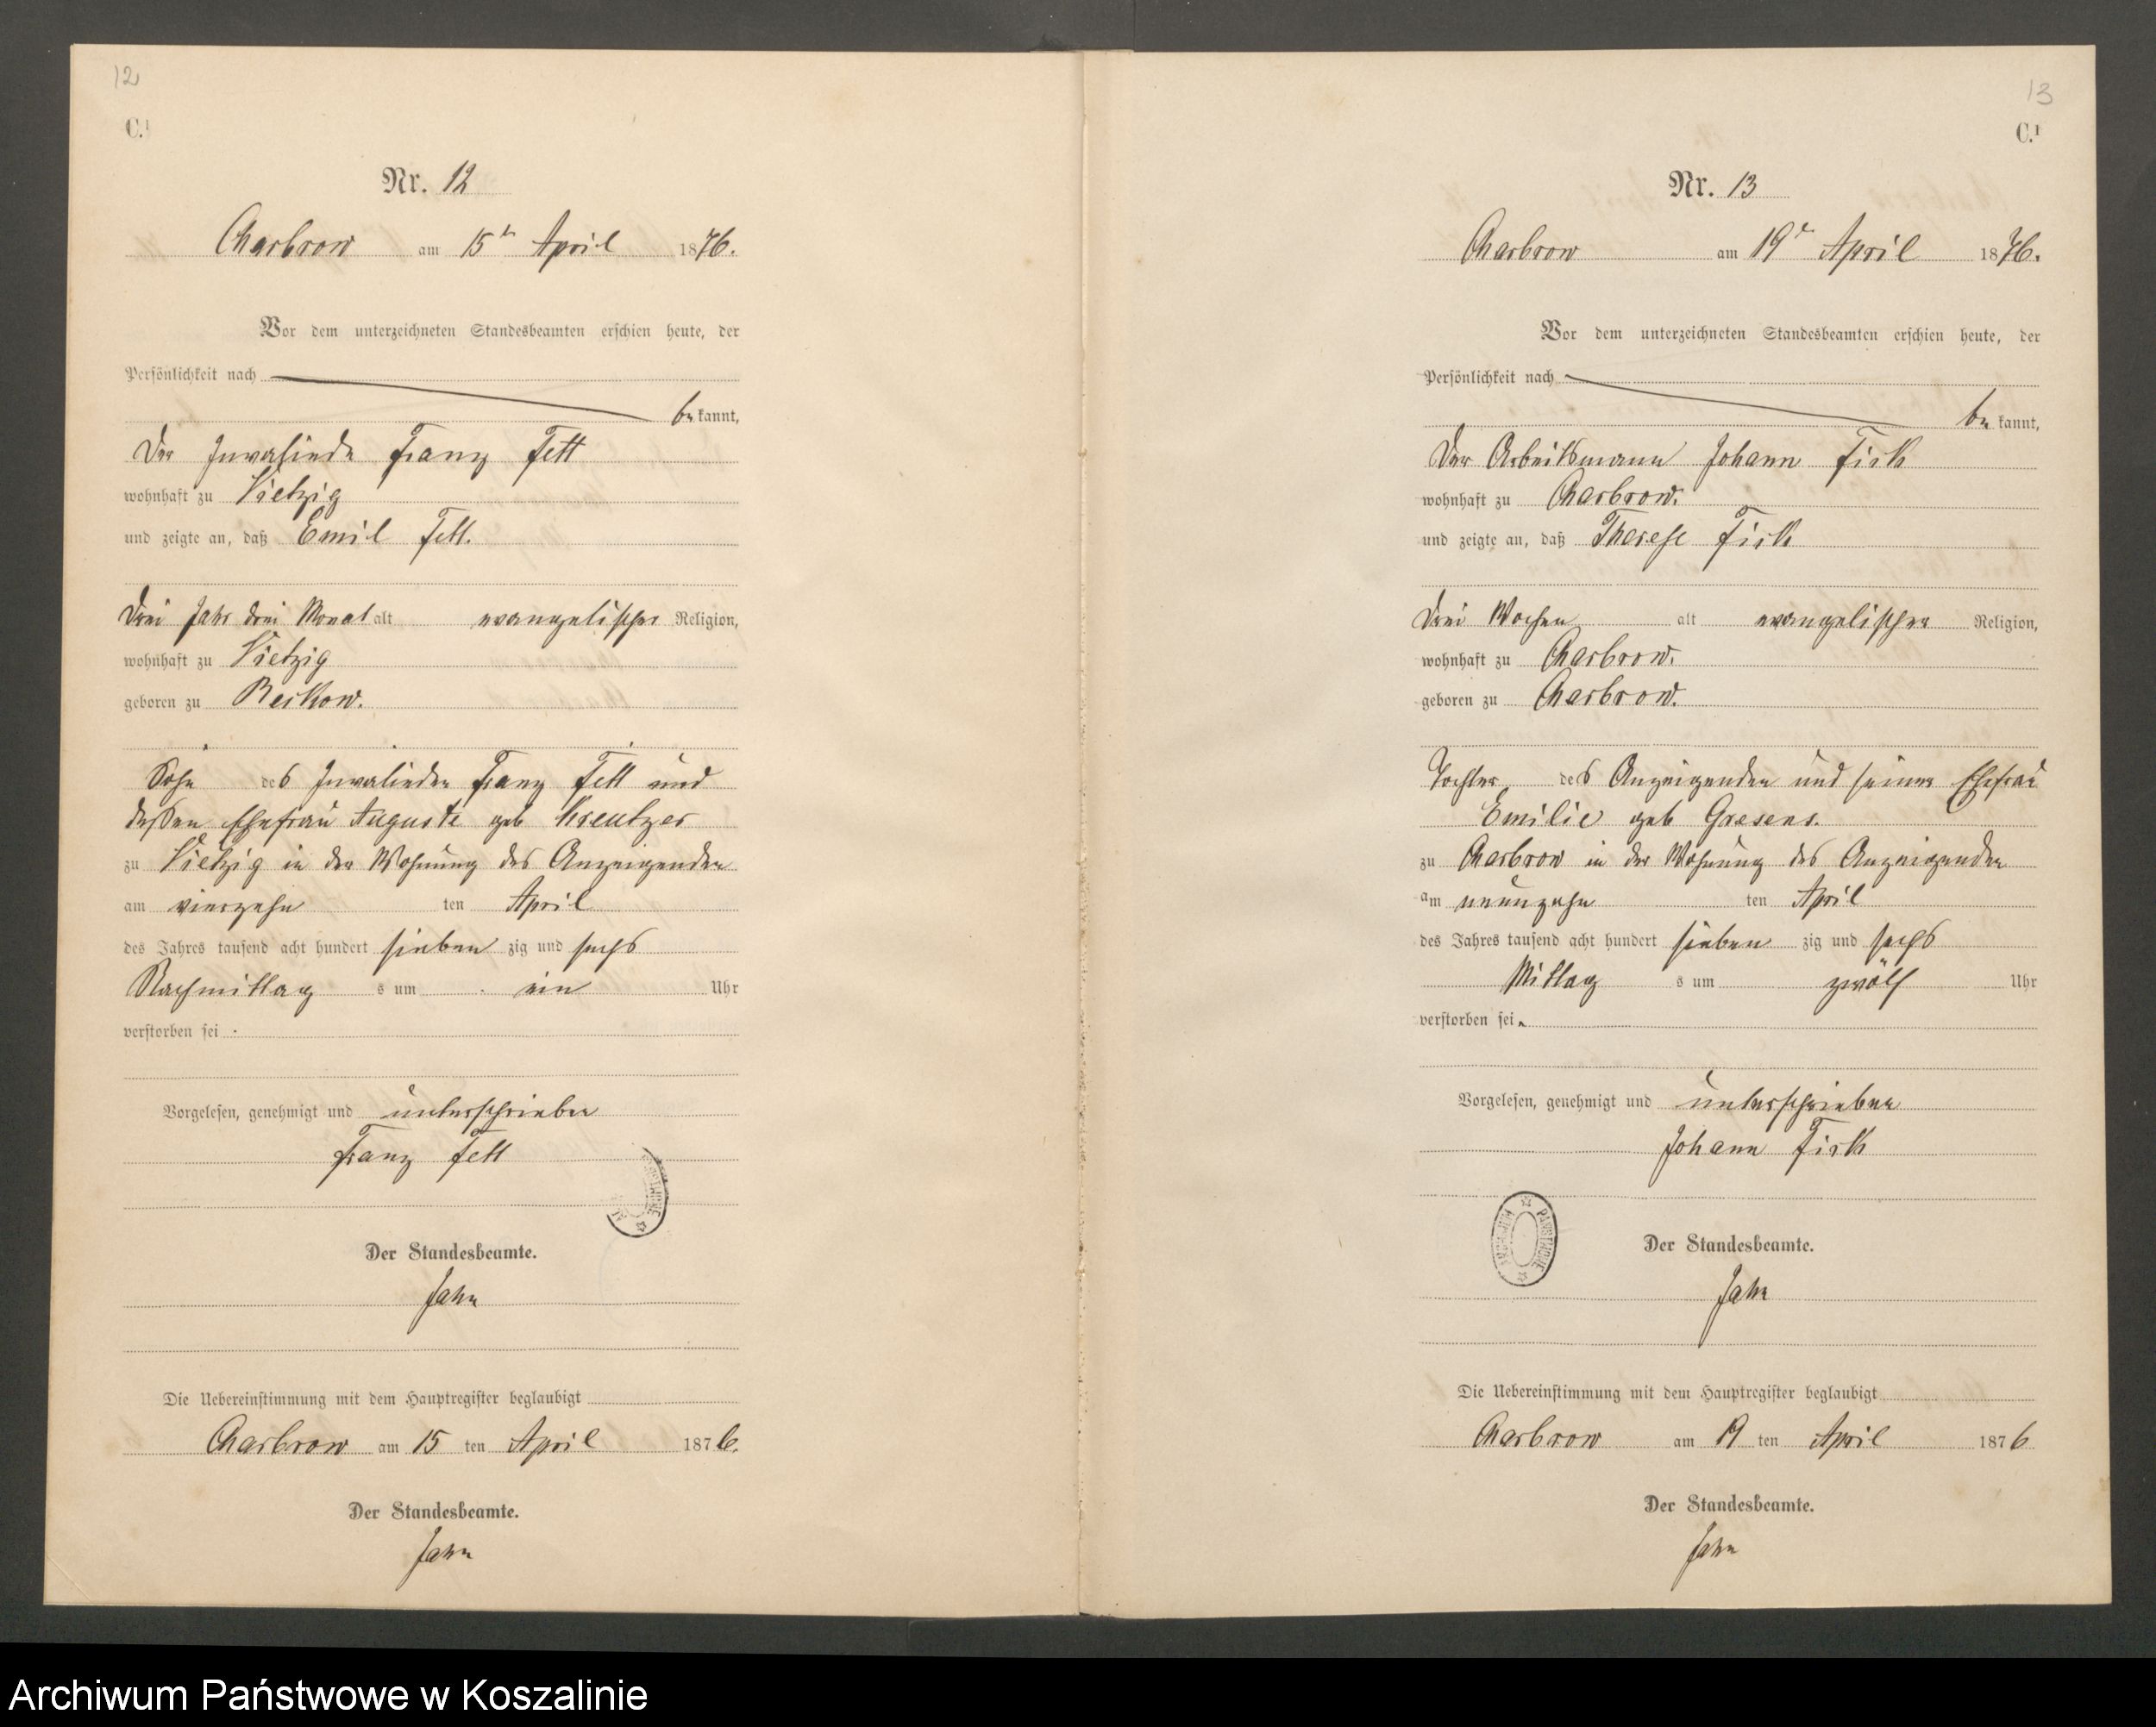 12
C.1
Nr. 12
Charbrow am 15ten April 1876.
Vor dem unterzeichneten Standesbeamten erschien heute, der
Persönlichkeit nach
bekannt,
Der Invaliede Franz Fett
wohnhaft zu Vietzig
und zeigte an, daß Emil Fett.
Drei Jahr drei Monat alt evangelischer Religion,
wohnhaft zu Vietzig
geboren zu Reckow.
Sohn des Invalieden Franz Fett und
dessen Ehefrau Auguste geb Kreutzer
zu Vietzig in der Wohnung des Anzeigenden
am vierzehn ten April
des Jahres tausend acht hundert sieben zig und sechs
Nachmittag s um ein Uhr
verstorben sei.
Vorgelesen, genehmigt und unterschrieben
Franz Fett
Der Standesbeamte.
Jahn
Die Uebereinstimmung mit dem Hauptregister beglaubigt
Charbrow am 15 ten April 1876.
Der Standesbeamte.
Jahn
13
C.1
Nr. 13
Charbrow am 19t April 1876.
Vor dem unterzeichneten Standesbeamten erschien heute, der
Persönlichkeit nach
bekannt,
Der Arbeitsmann Johann Fick
wohnhaft zu Charbrow.
und zeigte an, daß Therese Fick
Drei Wochen alt evangelischer Religion,
wohnhaft zu Charbrow.
geboren zu Charbrow.
Tochter des Anzeigenden und seiner Ehefrau
Emilie geb Gresens.
zu Charbrow in der Wohnung des Anzeigenden
am neunzehn ten April
des Jahres tausend acht hundert sieben zig und sechs
Mittag s um zwölf Uhr
verstorben sei.
Vorgelesen, genehmigt und unterschrieben
Johann Fick
ARCHIWUM PAŃSTWOWE
Der Standesbeamte.
Jahn
Die Uebereinstimmung mit dem Hauptregister beglaubigt
Charbrow am 19 ten April 1876
Der Standesbeamte.
Jahn
Archiwum Państwowe w Koszalinie